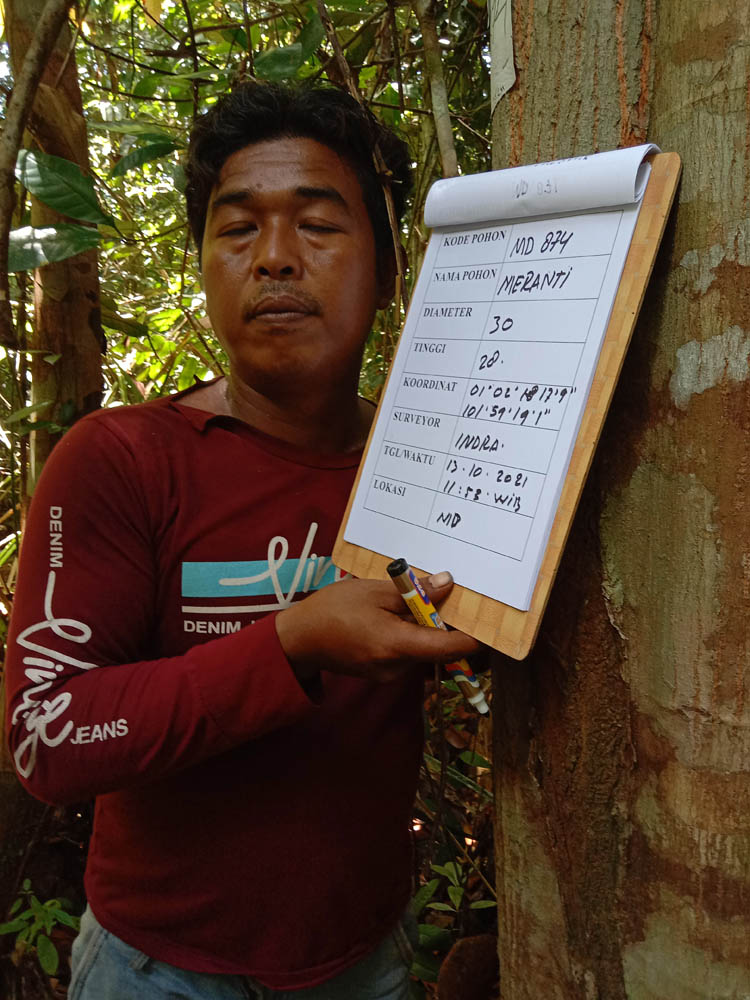 KODE POHON MD 874
NAMA POHON MERANTI
DIAMETER 30
TINGGI 28.
KOORDINAT 01°02'17.9"
101°59'19.1"
SURVEYOR INDRA.
TGL/WAKTU 13.10.2021
11:53.WIB
LOKASI MD
DENIM
Ving
JEANS
Vin
DENIM